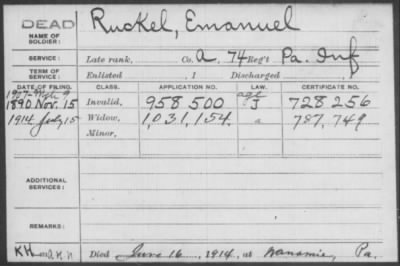 DEAD
NAME OF SOLDIER: Ruckel, Emanuel
SERVICE: Late rank, Co. A, 74 Reg't Pa. Inf
TERM OF SERVICE: Enlisted , 1 Discharged , 1
DATE OF FILING. CLASS. APPLICATION NO. LAW. CERTIFICATE NO.
1890 Nov. 15 Invalid, 958 500 J 728 256
1914 July 15 Widow, 1,031,154 a 787,749
Minor,
ADDITIONAL SERVICES:
REMARKS:
Died June 16, 1914, at Wanamie, Pa.